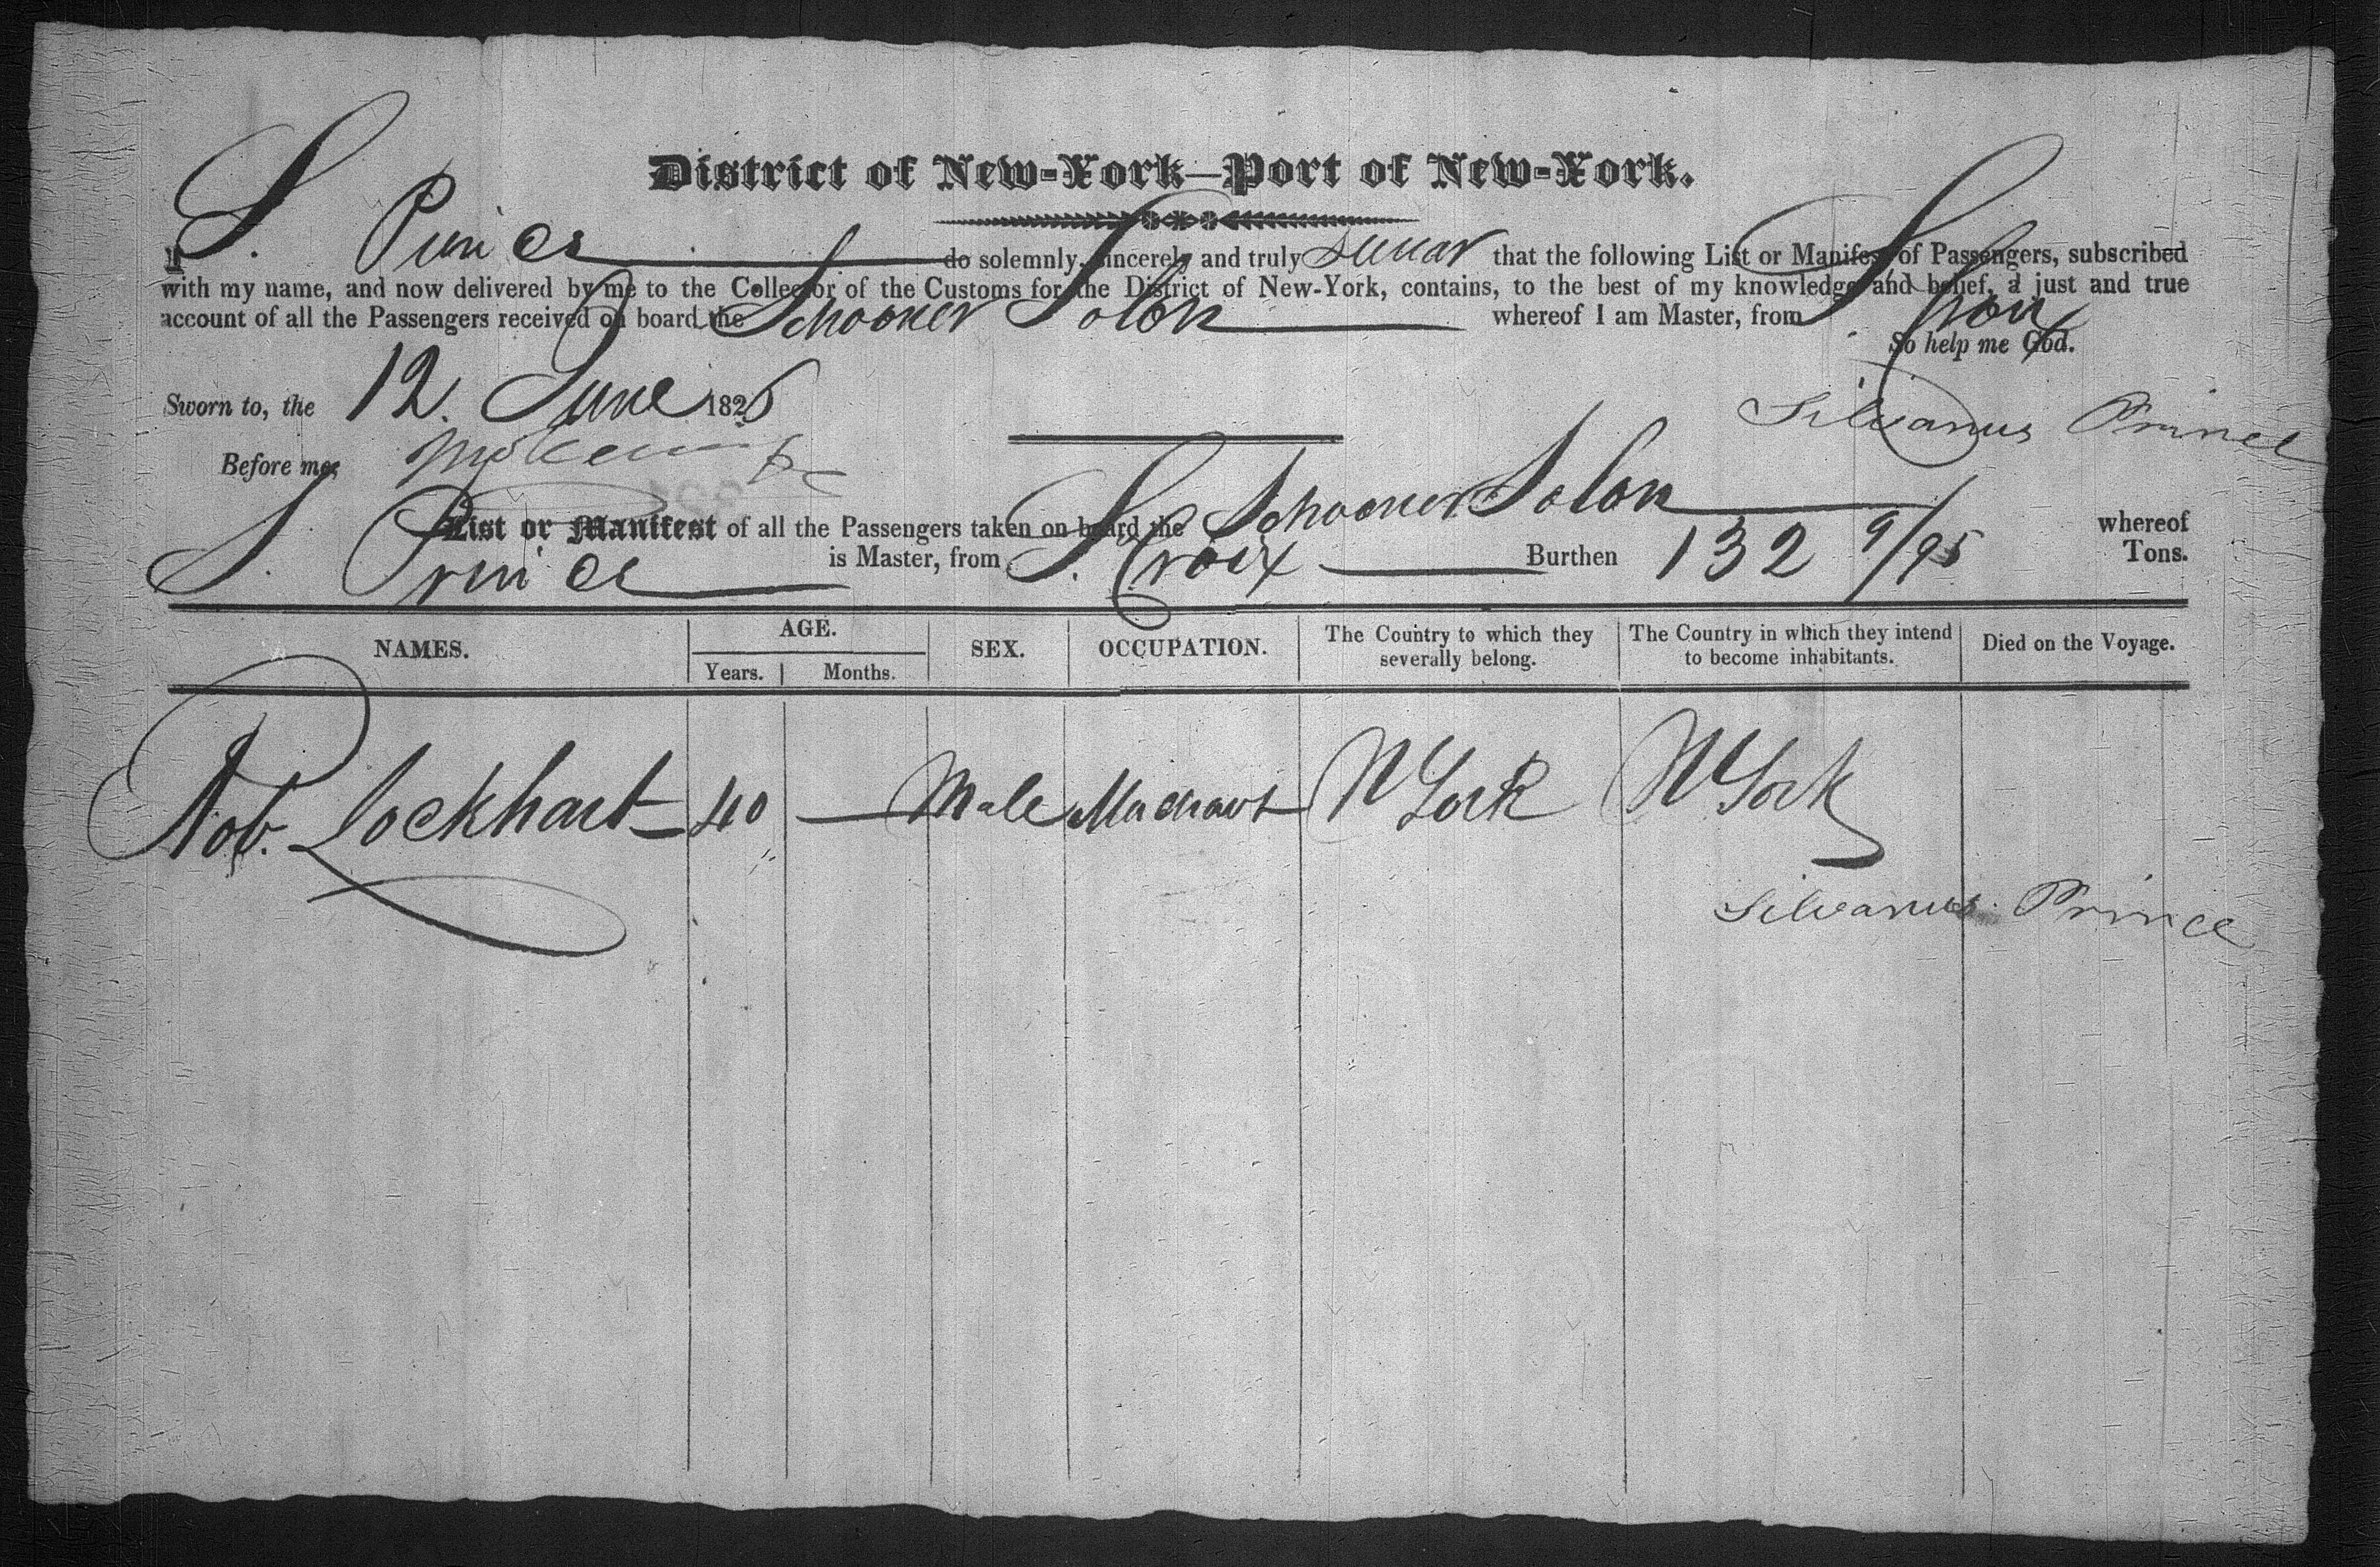 District of New-York—Port of New-York.
I S. Prince do solemnly, sincerely and truly swear that the following List or Manifest of Passengers, subscribed
with my name, and now delivered by me to the Collector of the Customs for the District of New-York, contains, to the best of my knowledge and belief, a just and true
account of all the Passengers received on board the Schooner Solon whereof I am Master, from S. Croix
So help me God.
Sworn to, the 12. June 1826
Silvanus Prince
Before me,
List or Manifest of all the Passengers taken on board the Schooner Solon whereof
S. Prince is Master, from S. Croix Burthen 132 9/95 Tons.
NAMES. AGE. SEX. OCCUPATION. The Country to which they severally belong. The Country in which they intend to become inhabitants. Died on the Voyage.
Years. Months.
Rob. Lockhart 40 — Male N York N York
Silvanus Prince